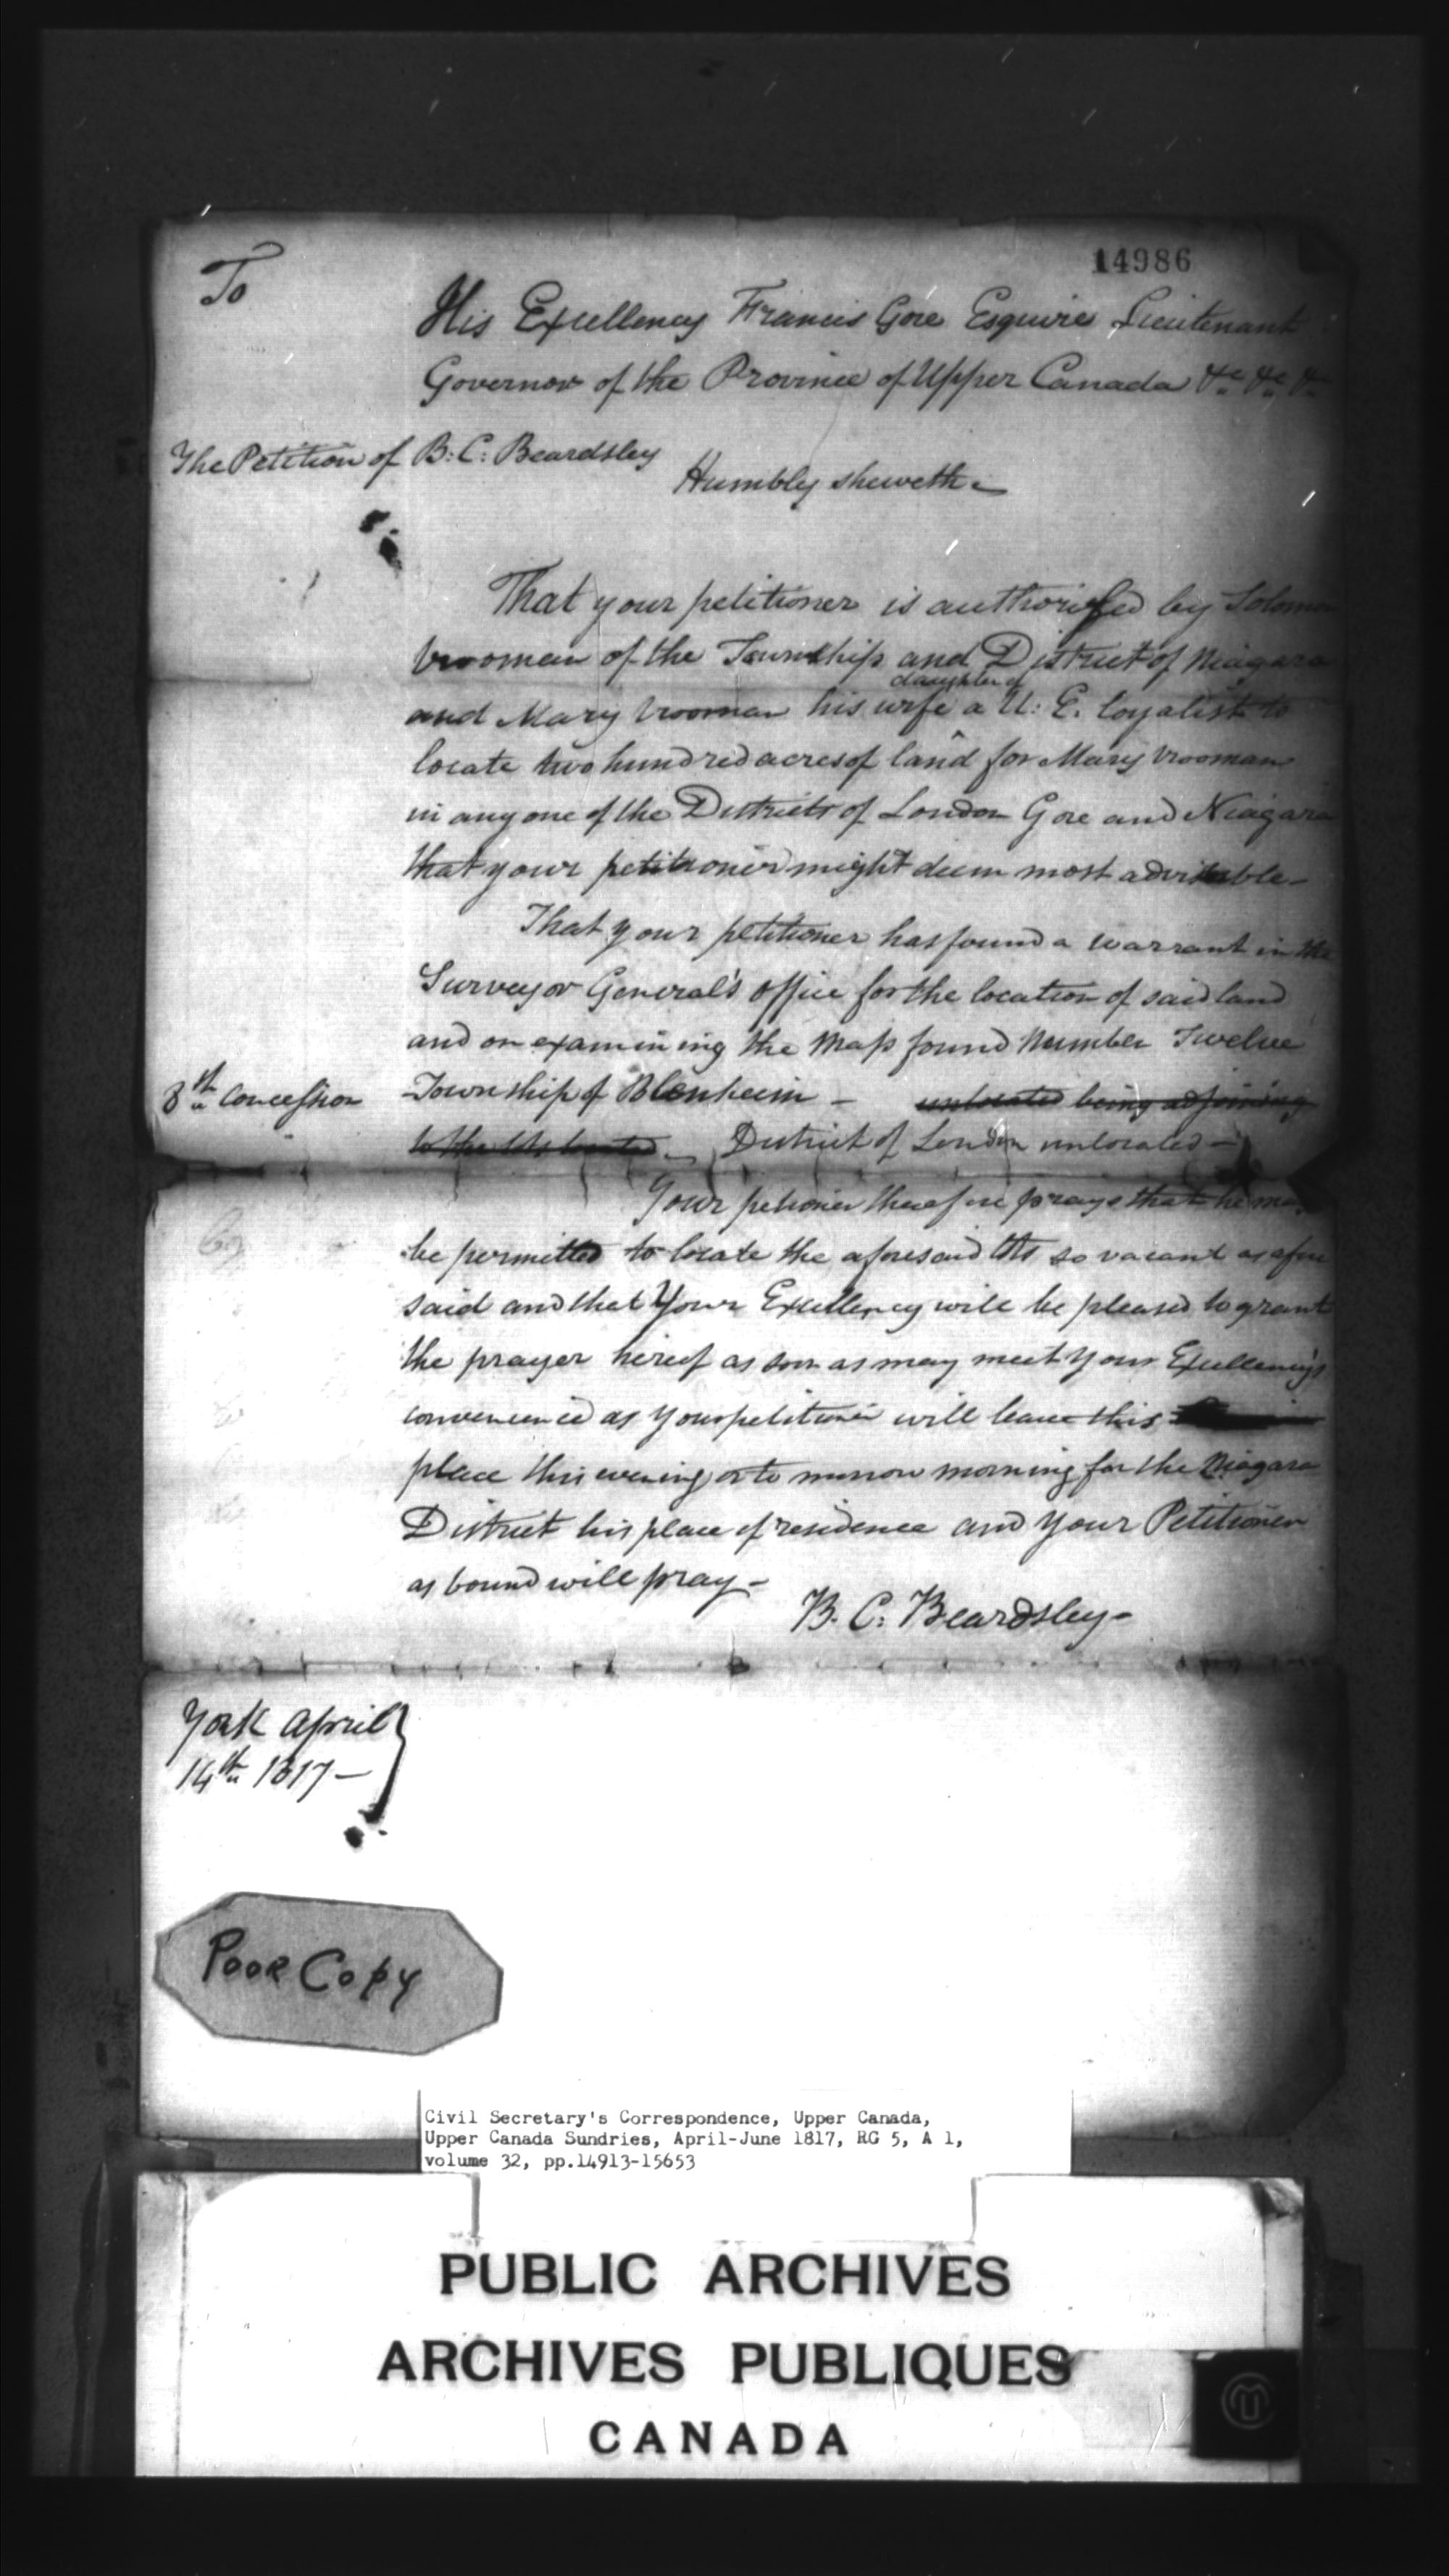 14986
To
His Excellency Francis Gore Esquire Lieutenant
Governor of the Province of Upper Canada &c &c &c
The Petition of B: C: Beardsley
Humbly sheweth -
That your petitioner is authorised by Solomon
Vrooman of the Township and District of Niagara
daughter of
and Mary Vrooman his wife a ^ U: E. loyalist to
locate two hundred acres of land for Mary Vrooman
in any one of the Districts of London Gore and Niagara
that your petitioner might deem most advisable -
That your petitioner has found a warrant in the
Surveyor General's office for the location of said land
and on examining the Map found Number Twelve
8th Concession Township of Blenheim - unlocated being adjoining
to the lots located - District of London unlocated -
Your petioner therefore prays that he may
be permitted to locate the aforesaid lots so vacant as afore
said and that Your Excellency will be pleased to grant
the prayer hereof as soon as may meet your Excellency's
convenience as your petitioner will leave this
place this evening or to morrow morning for the Niagara
District his place of residence and your Petitioner
as bound will pray -
B. C: Beardsley -
York April
14th 1817 -
Poor Copy
Civil Secretary's Correspondence, Upper Canada,
Upper Canada Sundries, April-June 1817, RG 5, A 1,
volume 32, pp.14913-15653
PUBLIC ARCHIVES
ARCHIVES PUBLIQUES
CANADA